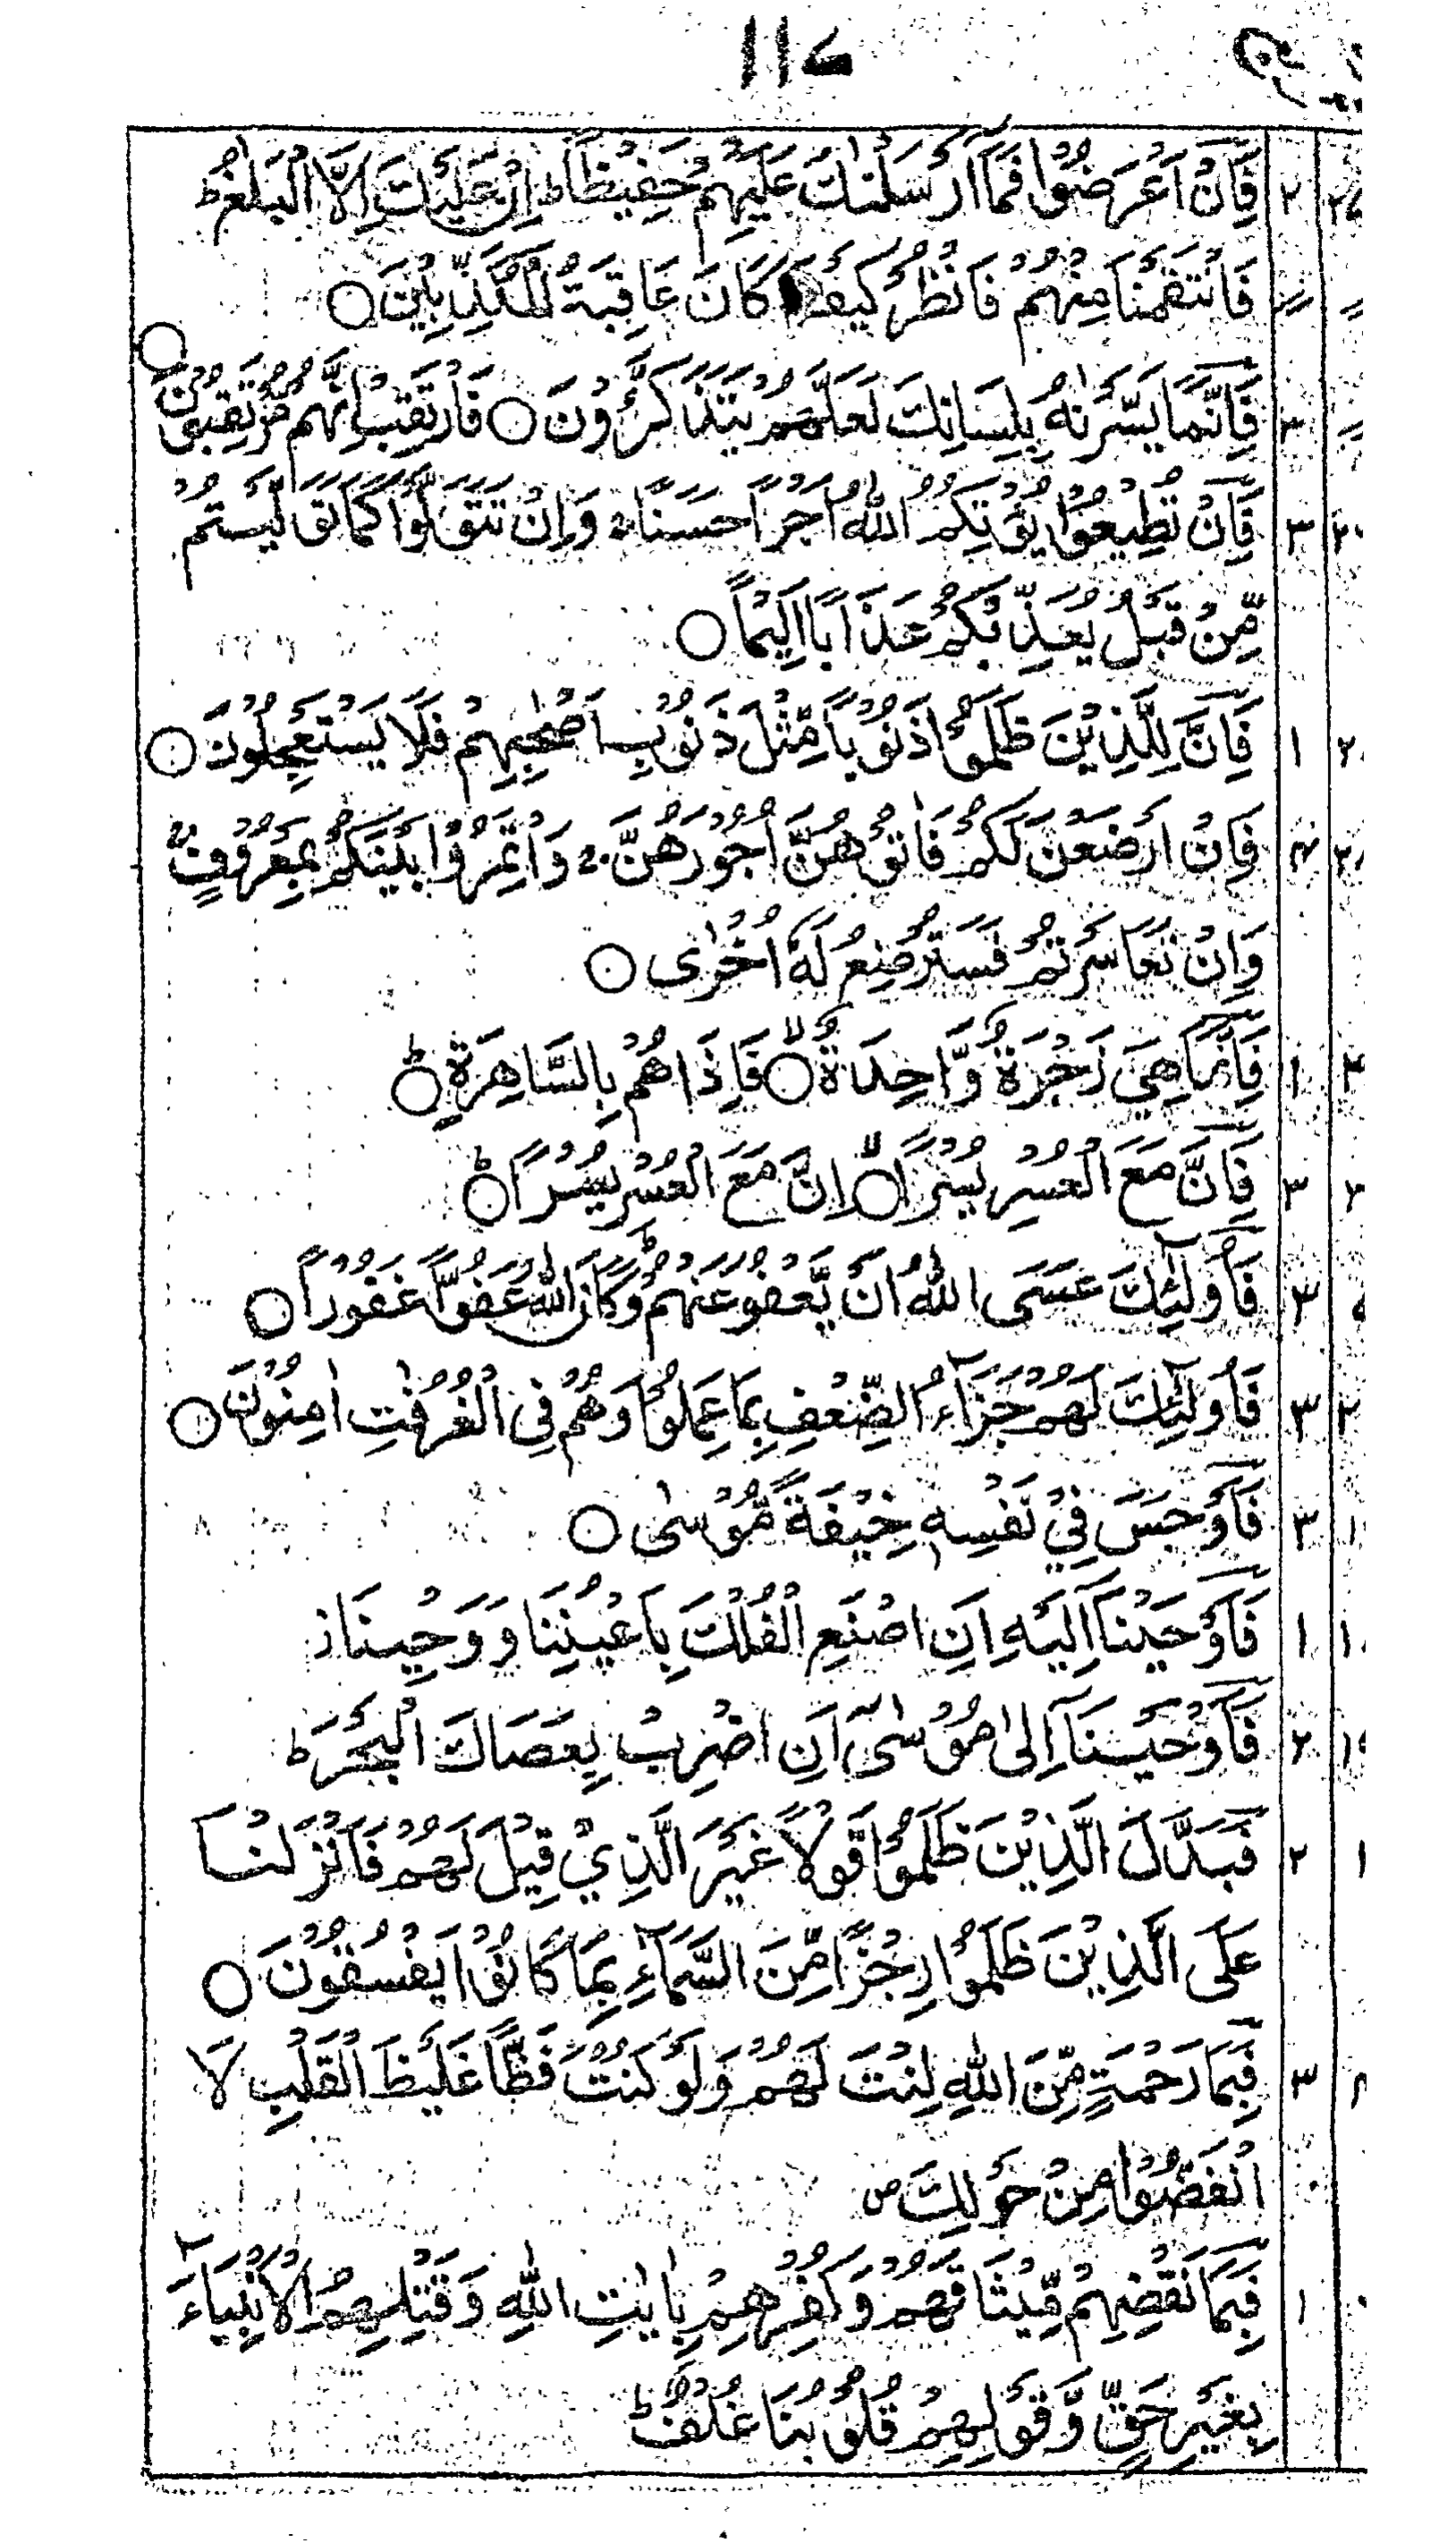 ۱۱۷
فَاِنْ اَعْرَضُوْا فَمَآ اَرْسَلْنٰكَ عَلَيْهِمْ حَفِيْظًا ؕ اِنْ عَلَيْكَ اِلَّا الْبَلٰغُ ؕ ۲
فَانْتَقَمْنَا مِنْهُمْ فَانْظُرْ كَيْفَ كَانَ عَاقِبَةُ الْمُكَذِّبِيْنَ ○
فَاِنَّمَا يَسَّرْنٰهُ بِلِسَانِكَ لَعَلَّهُمْ يَتَذَكَّرُوْنَ ○ فَارْتَقِبْ اِنَّهُمْ مُّرْتَقِبُوْنَ ○ ۳
فَاِنْ تُطِيْعُوْا يُؤْتِكُمُ اللّٰهُ اَجْرًا حَسَنًا ۚ وَاِنْ تَتَوَلَّوْا كَمَا تَوَلَّيْتُمْ ۳
مِّنْ قَبْلُ يُعَذِّبْكُمْ عَذَابًا اَلِيْمًا ○
فَاِنَّ لِلَّذِيْنَ ظَلَمُوْا ذَنُوْبًا مِّثْلَ ذَنُوْبِ اَصْحٰبِهِمْ فَلَا يَسْتَعْجِلُوْنَ ○ ۱
فَاِنْ اَرْضَعْنَ لَكُمْ فَاٰتُوْهُنَّ اُجُوْرَهُنَّ ۚ وَاْتَمِرُوْا بَيْنَكُمْ بِمَعْرُوْفٍ ۚ
وَاِنْ تَعَاسَرْتُمْ فَسَتُرْضِعُ لَهٗٓ اُخْرٰى ○
فَاِنَّمَا هِيَ زَجْرَةٌ وَّاحِدَةٌ ○ۙ فَاِذَا هُمْ بِالسَّاهِرَةِ ○ؕ ۱
فَاِنَّ مَعَ الْعُسْرِ يُسْرًا ○ۙ اِنَّ مَعَ الْعُسْرِ يُسْرًا ○ؕ ۳
فَاُولٰٓئِكَ عَسَى اللّٰهُ اَنْ يَّعْفُوَ عَنْهُمْ ؕ وَكَانَ اللّٰهُ عَفُوًّا غَفُوْرًا ○ ۳
فَاُولٰٓئِكَ لَهُمْ جَزَآءُ الضِّعْفِ بِمَا عَمِلُوْا وَهُمْ فِى الْغُرُفٰتِ اٰمِنُوْنَ ○ ۳
فَاَوْجَسَ فِيْ نَفْسِهٖ خِيْفَةً مُّوْسٰى ○ ۳
فَاَوْحَيْنَآ اِلَيْهِ اَنِ اصْنَعِ الْفُلْكَ بِاَعْيُنِنَا وَوَحْيِنَا ۱
فَاَوْحَيْنَآ اِلٰى مُوْسٰٓى اَنِ اضْرِبْ بِّعَصَاكَ الْبَحْرَ ؕ ۲
فَبَدَّلَ الَّذِيْنَ ظَلَمُوْا قَوْلًا غَيْرَ الَّذِيْ قِيْلَ لَهُمْ فَاَنْزَلْنَا ۲
عَلَى الَّذِيْنَ ظَلَمُوْا رِجْزًا مِّنَ السَّمَآءِ بِمَا كَانُوْا يَفْسُقُوْنَ ○
فَبِمَا رَحْمَةٍ مِّنَ اللّٰهِ لِنْتَ لَهُمْ وَلَوْ كُنْتَ فَظًّا غَلِيْظَ الْقَلْبِ لَا ۳
انْفَضُّوْا مِنْ حَوْلِكَ ص
فَبِمَا نَقْضِهِمْ مِّيْثَاقَهُمْ وَكُفْرِهِمْ بِاٰيٰتِ اللّٰهِ وَقَتْلِهِمُ الْاَنْبِيَآءَ ۱
بِغَيْرِ حَقٍّ وَّقَوْلِهِمْ قُلُوْبُنَا غُلْفٌ ؕ